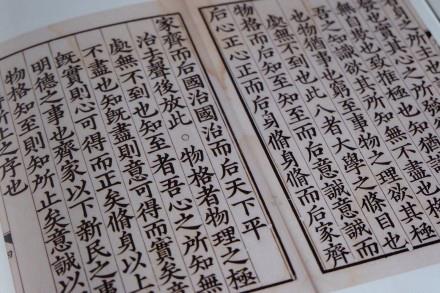 發也實其心之所發
無自欺也致推極也知猶識也推極
吾之知識欲其所知無不盡也格至
物猶事也窮至事物之理欲其極
處無不到也此八者大學之條目也
物格而后知至知至而后意誠意誠而
后心正心正而后身脩身脩而后家齊
家齊而后國治國治而后天下平
治去聲後放此○物格者物理之極
處無不到也知至者吾心之所知無
不盡也知既盡則意可得而實矣意
既實則心可得而正矣脩身以上
明德之事也齊家以下新民之事
物格知至則知所止矣意誠以
所止之序也